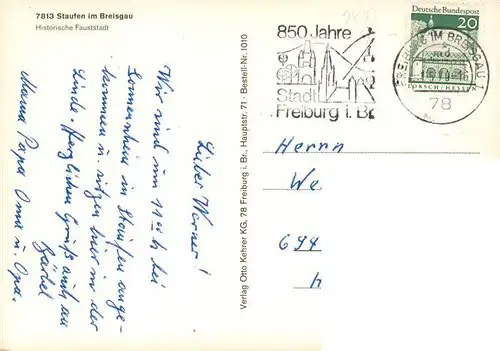 7813 Staufen im Breisgau
Historische Fauststadt
Lieber Werner!
Wir sind um 11 00 h bei
Sonnenschein in Staufen ange-
kommen u. sitzen hier in der
Linde. Herzlichen Gruß auch an
Bärbel
Mama Papa Oma u. Opa.
Verlag Otto Kehrer KG, 78 Freiburg i. Br., Hauptstr. 71 · Bestell-Nr. 1010
850 Jahre
Stadt
Freiburg i. Br.
FREIBURG IM BREISGAU 1
78
Deutsche Bundespost
20
LORSCH/HESSEN
Herrn
We
694
h